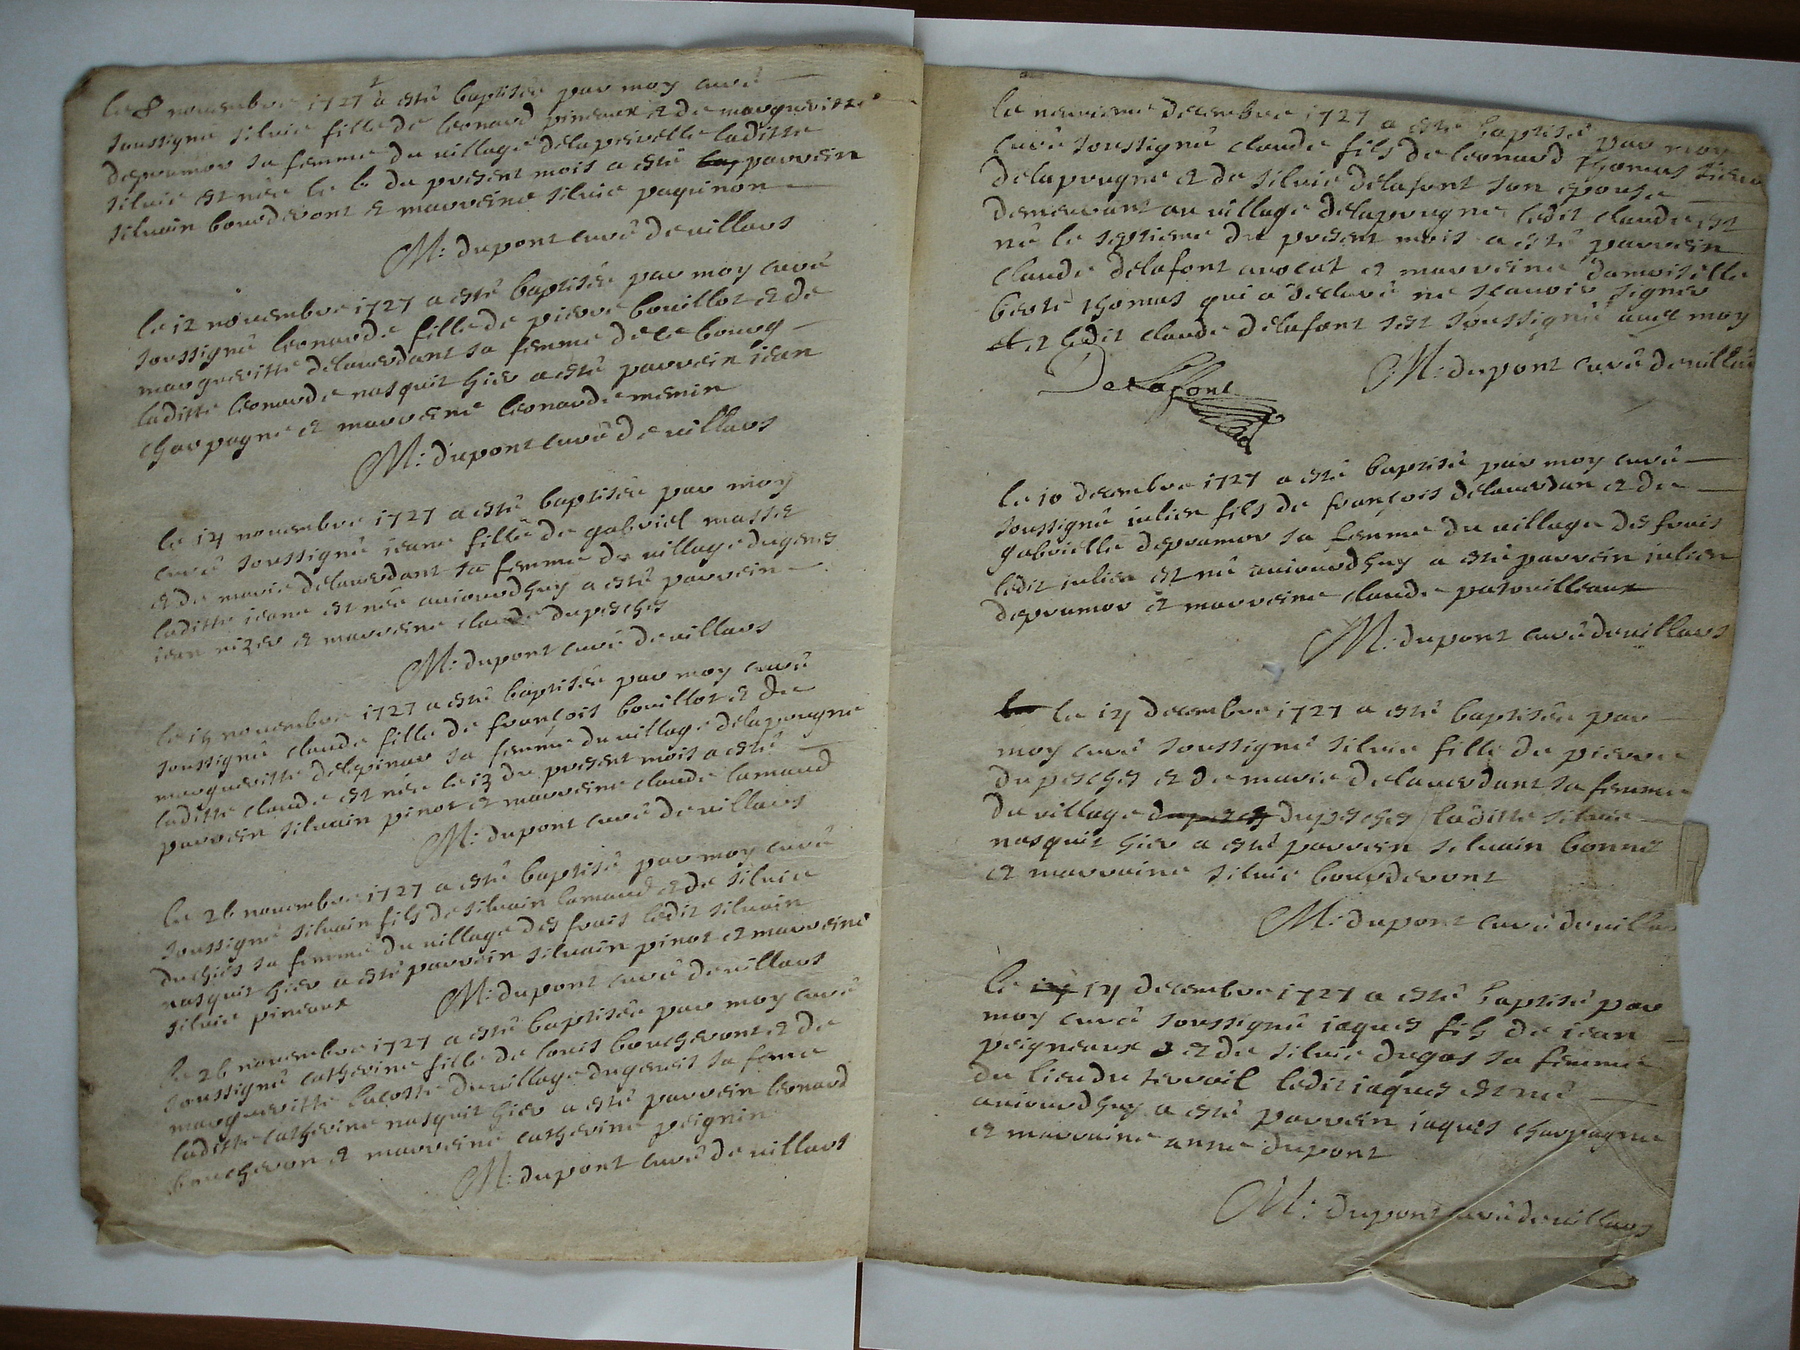 le 8 novembre 1727 a esté baptisée par moy curé
soussigné silvie fille de leonard pineaux et de margueritte
depramor sa femme du village delapeivelle laditte
silvie est née le 6 du present mois a esté parrein
silvain bourderont et marreine silvie paquinon
M: dupont curé devillars
le 12 novembre 1727 a esté baptisée par moy curé
soussigné leonarde fille de pierre bouillot et de
margueritte delaverdant sa femme de ce bourg
laditte leonarde nasquit hier a esté parrein jean
charpagne et marreine leonarde menin
M: dupont curé devillars
le 14 novembre 1727 a esté baptisée par moy
curé soussigné jeane fille de gabriel masse
et de marie delaverdant sa femme du village dugenes
laditte jeane est née aujourdhuy a esté parrein
jean nizer et marreine claude dupesches
M: dupont curé devillars
le 15 novembre 1727 a esté baptisée par moy curé
soussigné claude fille de françois bouillot et de
margueritte delepinas sa femme du village delaprugne
laditte claude est née le 13 du present mois a esté
parrein silvain pinot et marreine claude lamaud
M: dupont curé devillars
le 26 novembre 1727 a esté baptisé par moy curé
soussigné silvain fils de silvain lamaud et de silvie
duchés sa femme du village des frais ledit silvain
nasquit hier a esté parrein silvain pinot et marreine
silvie pineaux M: dupont curé devillars
le 26 novembre 1727 a esté baptisée par moy curé
soussigné catherine fille de louis boucheront et de
margueritte lacoste du village dugenest sa feme
laditte catherine nasquit hier a esté parrein leonard
boucheron et marreine catherine peignin
M: dupont curé de villars
le neuvieme decembre 1727 a esté baptisé par moy
curé soussigné claude fils de leonard thomas sieur
delaprugne et de silvie delafont son epouse
demeurant au village delaprugne ledit claude est
né le septieme du present mois a esté parrein
claude delafont avocat et marreine damoiselle
berte thomas qui a declaré ne scavoir signer
et ledit claude delafont sest soussigné avec moy
Delafont M: dupont curé devillars
le 10 decembre 1727 a esté baptisé par moy curé
soussigné julien fils de françois delaverdan et de
gabrielle depramor sa femme du village des frais
ledit julien est né aujourdhuy a esté parrein julien
depramor et marreine claude patouilleaux
M: dupont curé devillars
le 14 decembre 1727 a esté baptisée par
moy curé soussigné silvie fille de pierre
dupesches et de marie delaverdant sa femme
du village dupesches laditte silvie
nasquit hier a esté parrein silvain bonnet
et marraine silvie bourderont
M: dupont curé devillars
le 14 decembre 1727 a esté baptisé par
moy curé soussigné jaques fils de jean
peigneaux et de silvie dugas sa femme
du lieu du terrail ledit jaques est né
aujourdhuy a esté parrein jaques charpagne
et marraine anne dupont
M: dupont curé devillars